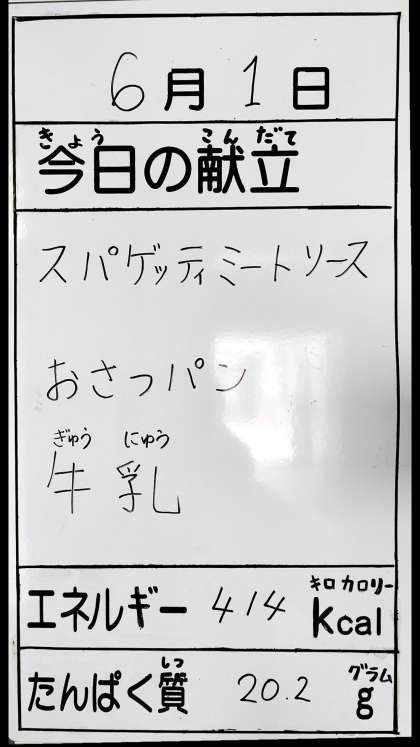 6月1日
きょう こんだて
今日の献立
スパゲッティミートソース
おさつパン
ぎゅう にゅう
牛乳
キロカロリー
エネルギー 414 kcal
しつ グラム
たんぱく質 20.2 g